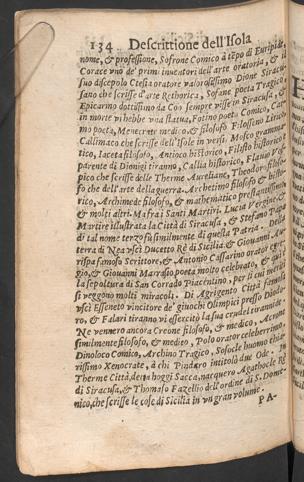 134 Descrittione dell'Isola
nome, & professione, Sofrone Comico à tẽpo di Euripide,
Corace vno de' primi inuentori dell'arte oratoria, & il
suo discepolo Ctesia oratore valorosissimo Dione Siracu-
sano che scrisse d'arte Rethorica, Sofane poeta Tragico,
Epicarmo dottissimo da Coo sempre visse in Siracusa, &
in morte vi hebbe vna statua, Fotino poeta Comico, Car-
mo poeta, Menecrate medico & filosofo Filosseno Lirico
Callimaco che scrisse dell'Isole in versi. Mosco gramma-
tico, Iaceta filosofo, Antioco historico, Filisto historico &
parente di Dionigi tiranno, Callia historico, Flauio Vop-
pico che scrisse delle Therme Aureliane, Theodoro filoso-
fo che dell'arte della guerra. Archetimo filosofo & histo-
rico, Archimede filosofo, & mathematico prestantissimo
& molti altri. Ma fra i Santi Martiri. Lucia Vergine &
Martire illustrata la Città di Siracusa, & Stefano Papa
di tal nome terzo fù similmente di questa Patria. Della
terra di Nea vscì Ducetto Rè di Sicilia & Giouanni Au-
rispa famoso Scrittore, & Antonio Cassarino orator egre-
gio, & Giouanni Marasio poeta molto celebrato, & qui è
la sepoltura di San Corrado Piacentino, per li cui meriti
si veggono molti miracoli. Di Agrigento Città famosa
vscì Esseneto vincitore de' giuochi Olimpici presso Diodo-
ro, & Falari tiranno vi essercitò la sua crudel tirannide.
Ne vennero ancora Creone filosofo, & medico, Acrone
similmente filosofo, & medico, Polo orator celeberrimo,
Dinoloco Comico, Archino Tragico, Sofocle huomo chia-
rissimo Xenocrate, à chi Pindaro intitolò due Ode. In
Therme Città, detta hoggi Sacca, nacquero Agathocle Rè
di Siracusa, & Thomaso Fazellio dell'ordine di S. Dome-
nico, che scrisse le cose di Sicilia in vn gran volume.
PA-